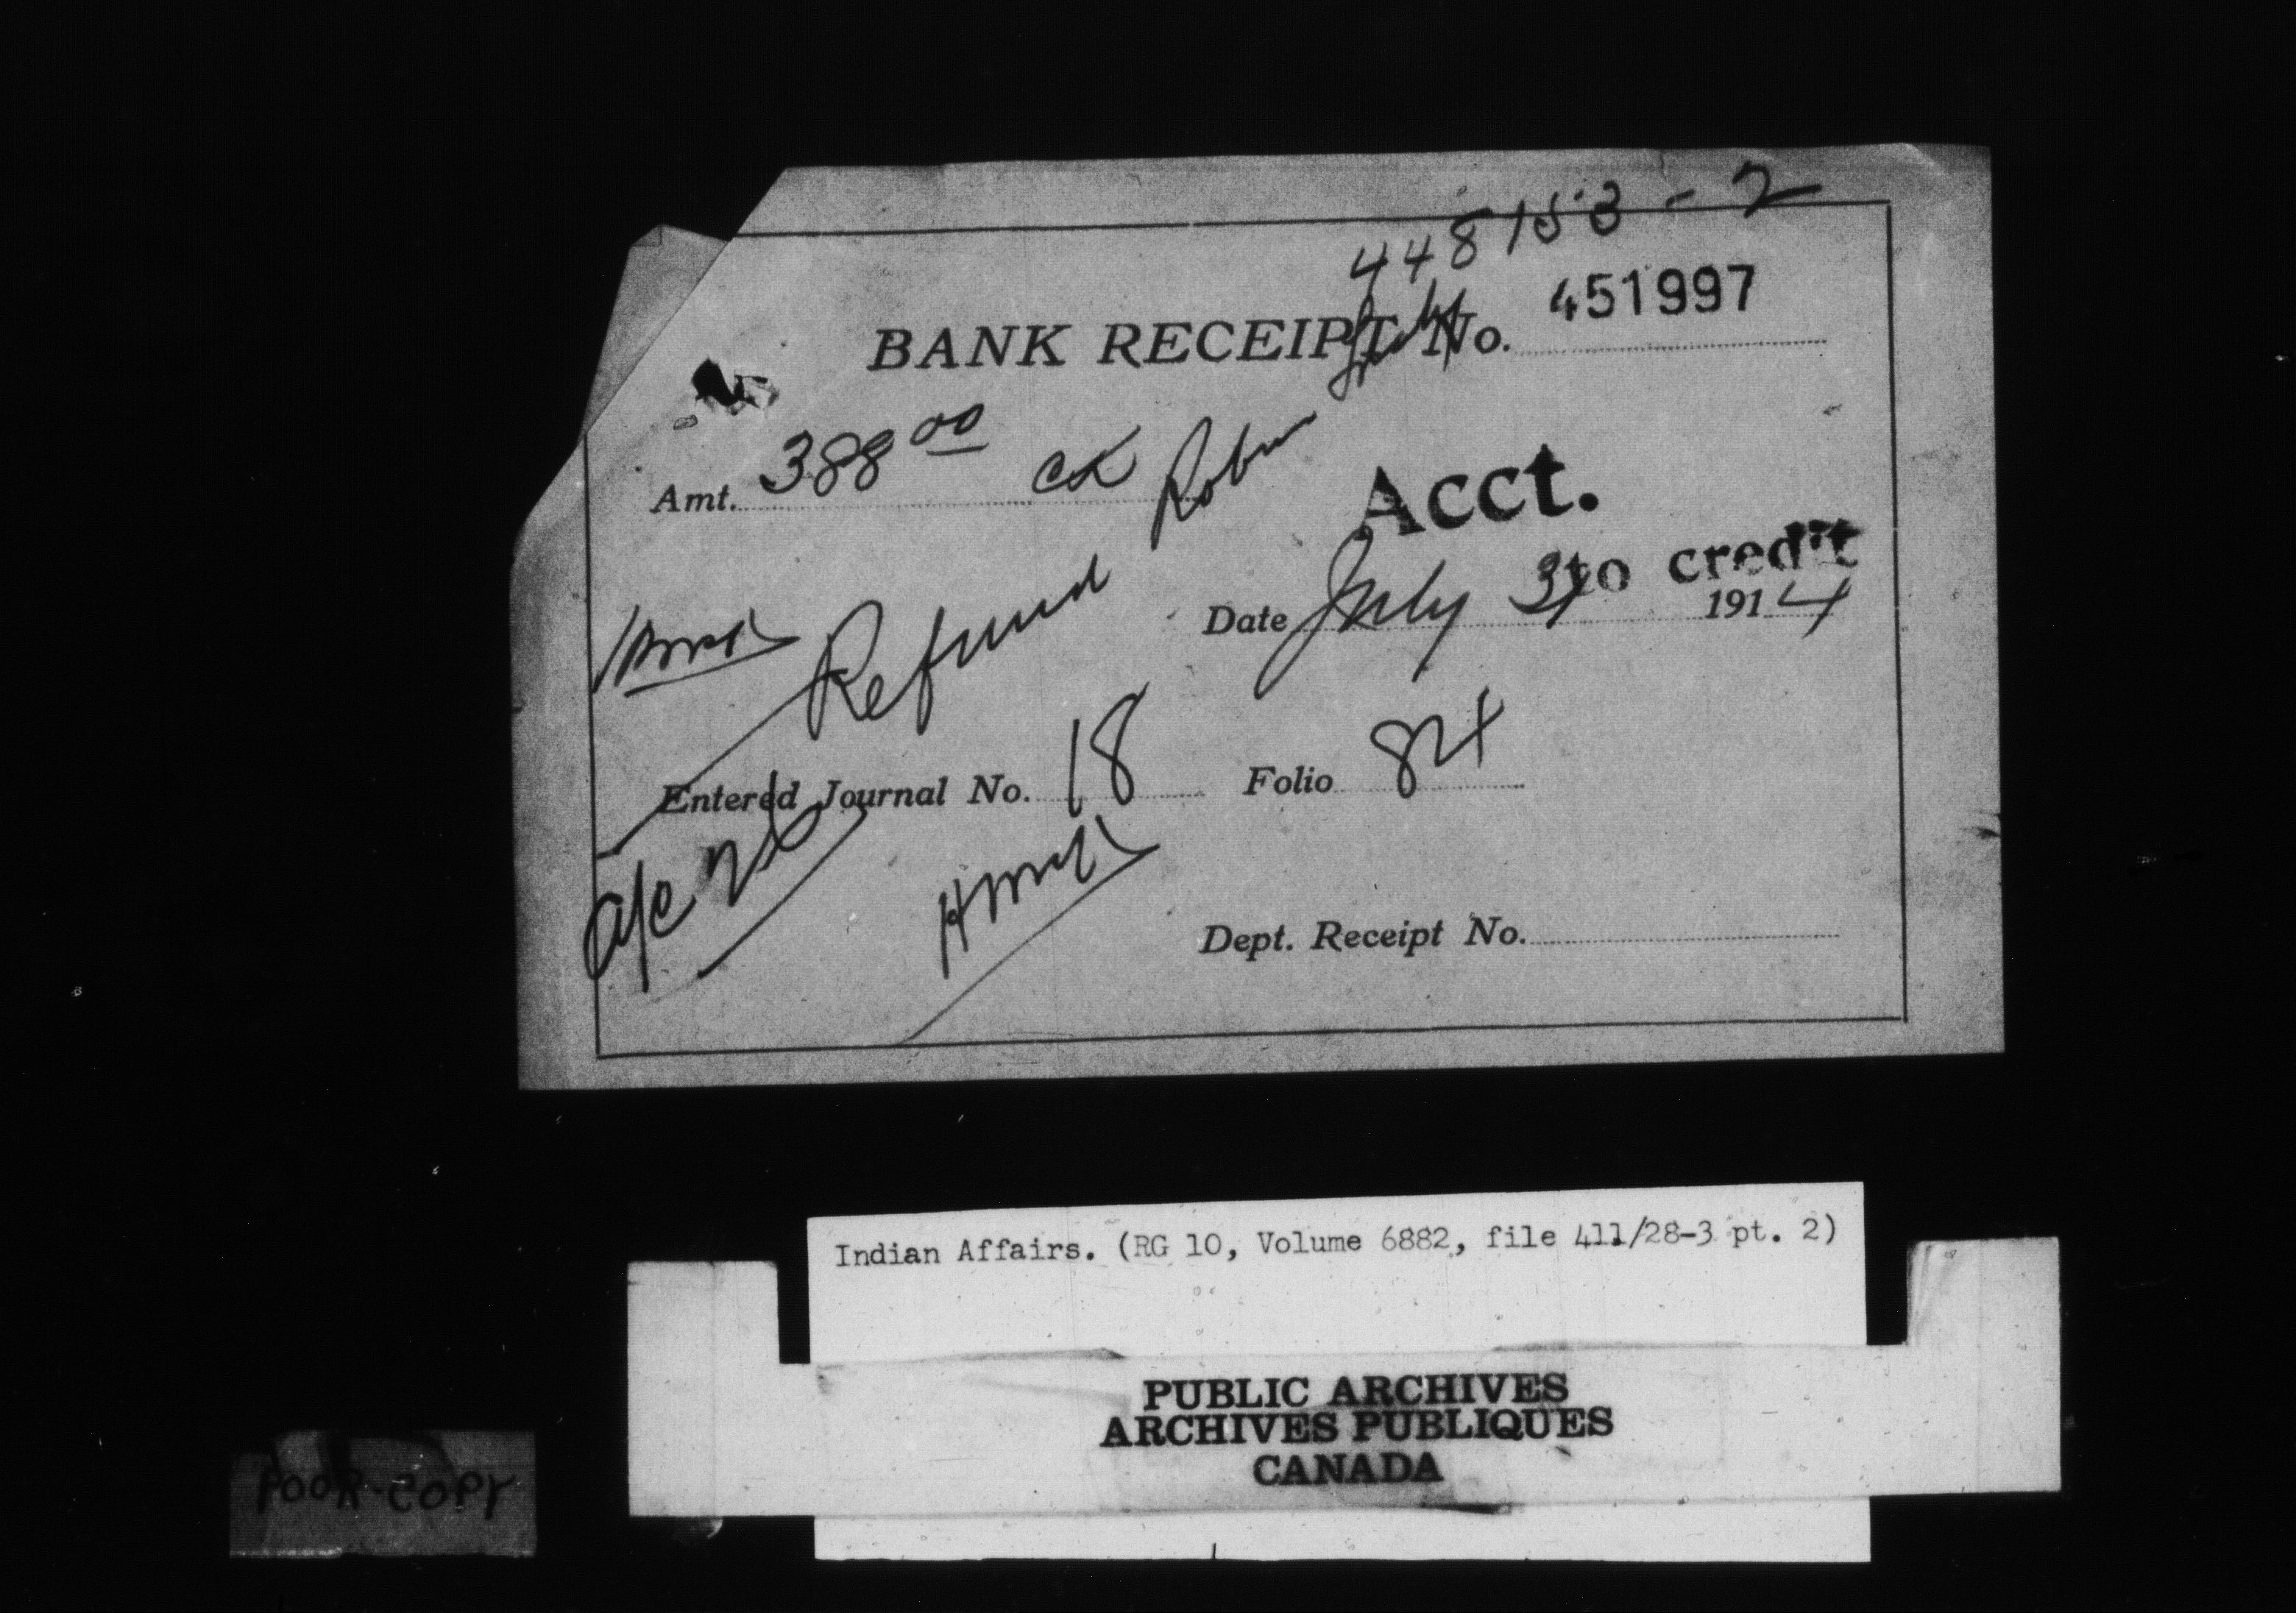 448153-2
BANK RECEIPT No. 451997
Amt. 388 00 CK
Acct.
to credit
Date July 31 1914
Refund
Entered Journal No. 18 Folio 84
a/c 26
Dept. Receipt No.
Indian Affairs. (RG 10, Volume 6882, file 411/28-3 pt. 2)
PUBLIC ARCHIVES
ARCHIVES PUBLIQUES
CANADA
POOR-COPY